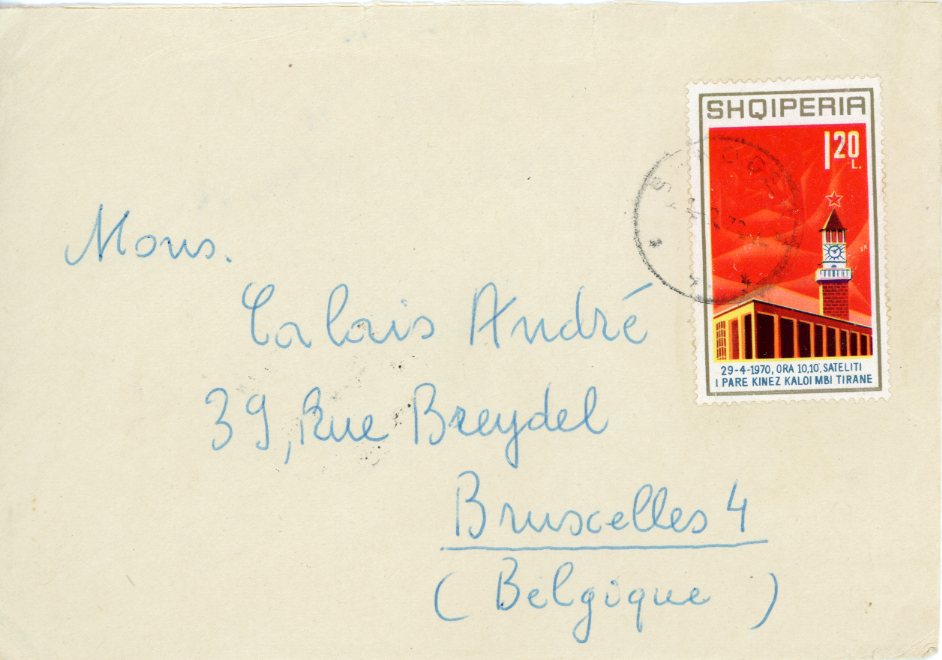 SHQIPERIA
1.20 L.
29-4-1970, ORA 10,10, SATELITI
I PARE KINEZ KALOI MBI TIRANE
Mons.
Calais André
39, Rue Breydel
Bruxcelles 4
(Belgique)